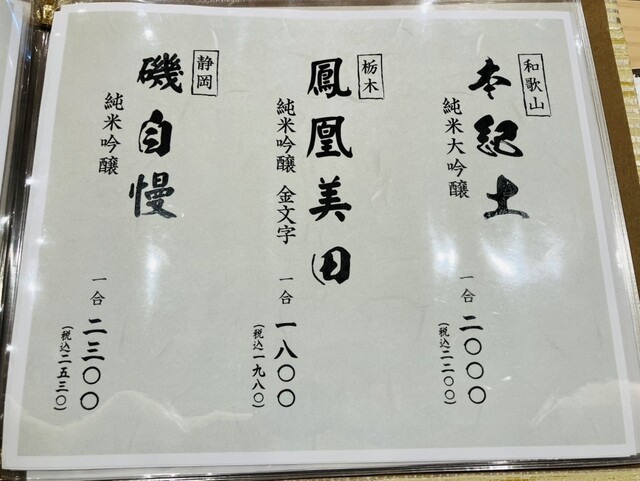 和歌山
本紀土
純米大吟醸
一合 二〇〇〇
(税込二二〇〇)
栃木
鳳凰美田
純米吟醸 金文字
一合 一八〇〇
(税込一九八〇)
静岡
磯自慢
純米吟醸
一合 二三〇〇
(税込二五三〇)